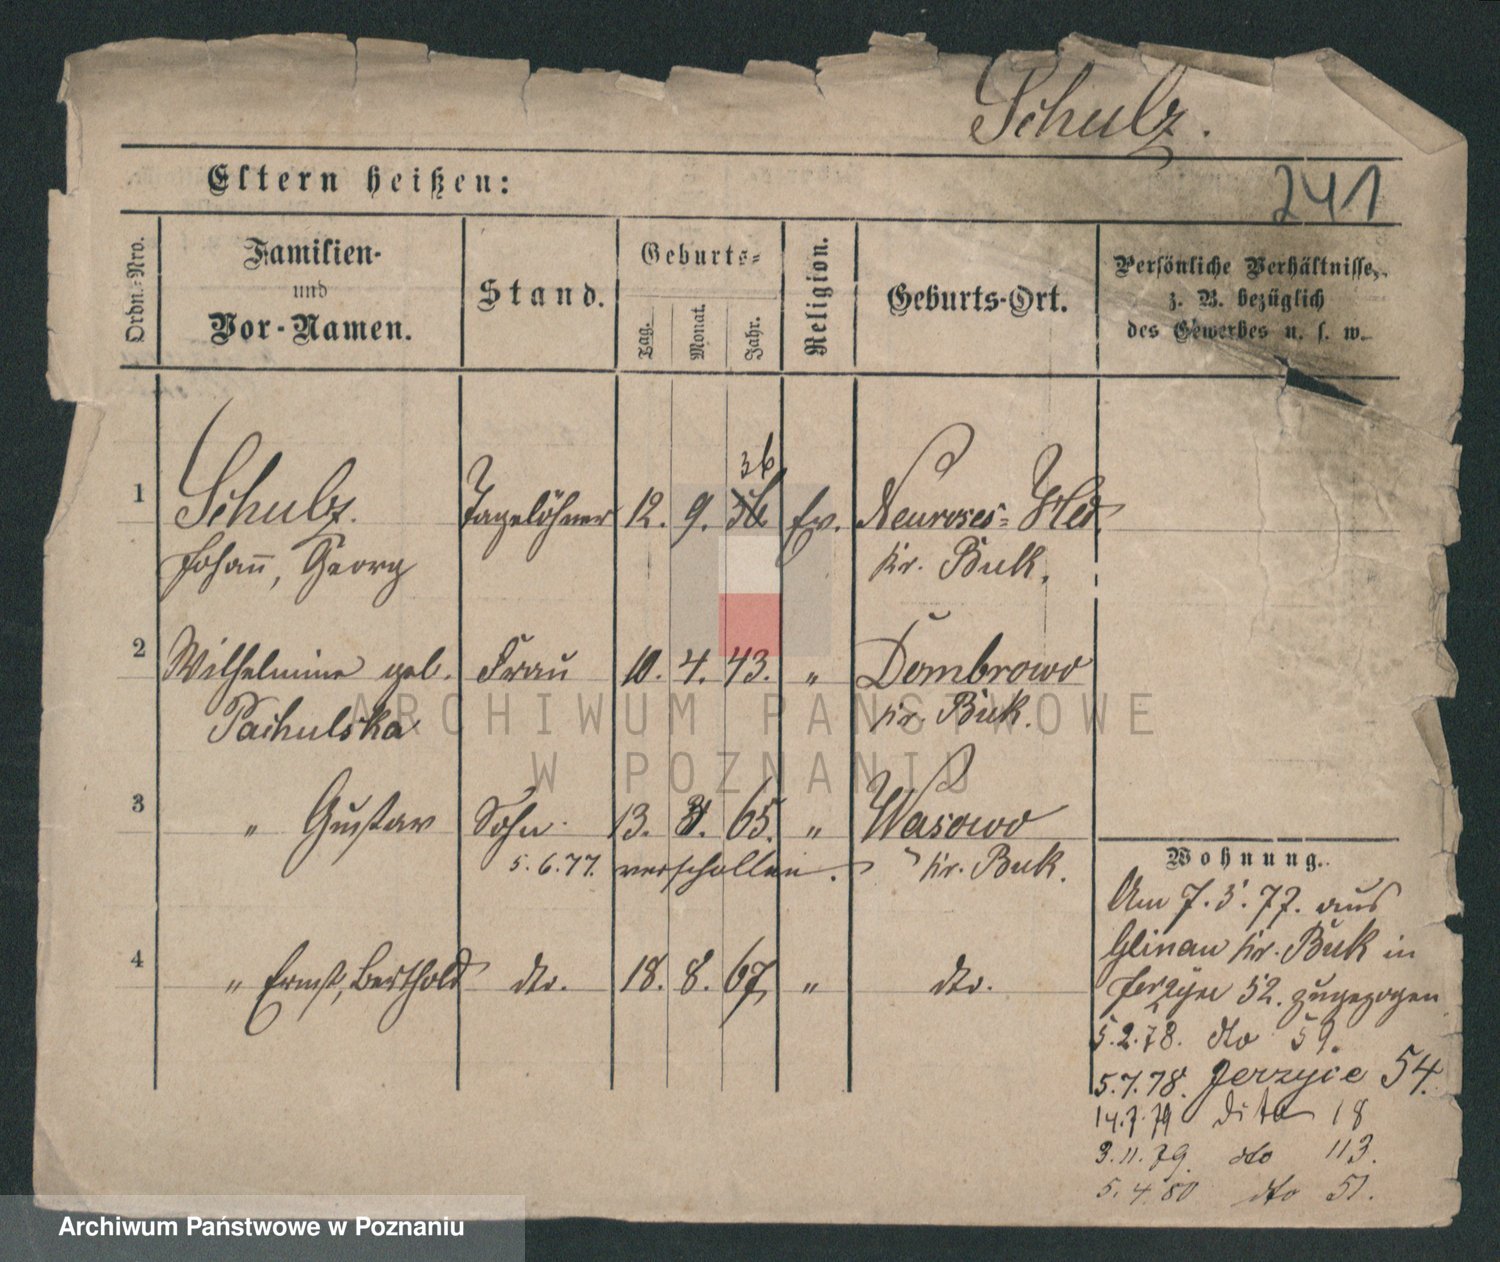 Schulz.
241
Eltern heißen:
Ordn.-Nro.
Familien-
und
Vor-Namen.
Stand.
Geburts-
Tag.
Monat.
Jahr.
Religion.
Geburts-Ort.
Persönliche Verhältnisse,
z. B. bezüglich
des Gewerbes u. s. w.
36
1 Schulz. Tagelöhner 12. 9. 36 Ev. Neuroses-Hld.
Johann, Georg Kr. Buk.
2 Wilhelmine geb. Frau 10. 4. 43. " Dombrowo
Pachulska Kr. Buk.
3 " Gustav Sohn 13. 65. " Wasowo
5.6.77. verschollen. Kr. Buk.
4 " Ernst, Berthold dto. 18. 8. 67 " dto.
Wohnung.
Am 7.5.77. aus
Glinau Kr. Buk in
Jerzyce 52. zugezogen
5.2.78. dto 59.
5.7.78. Jerzyce 54.
14.7.79 dito 18
3.11.79. dto 113.
5.4.80 dto 51.
ARCHIWUM PAŃSTWOWE
W POZNANIU
Archiwum Państwowe w Poznaniu